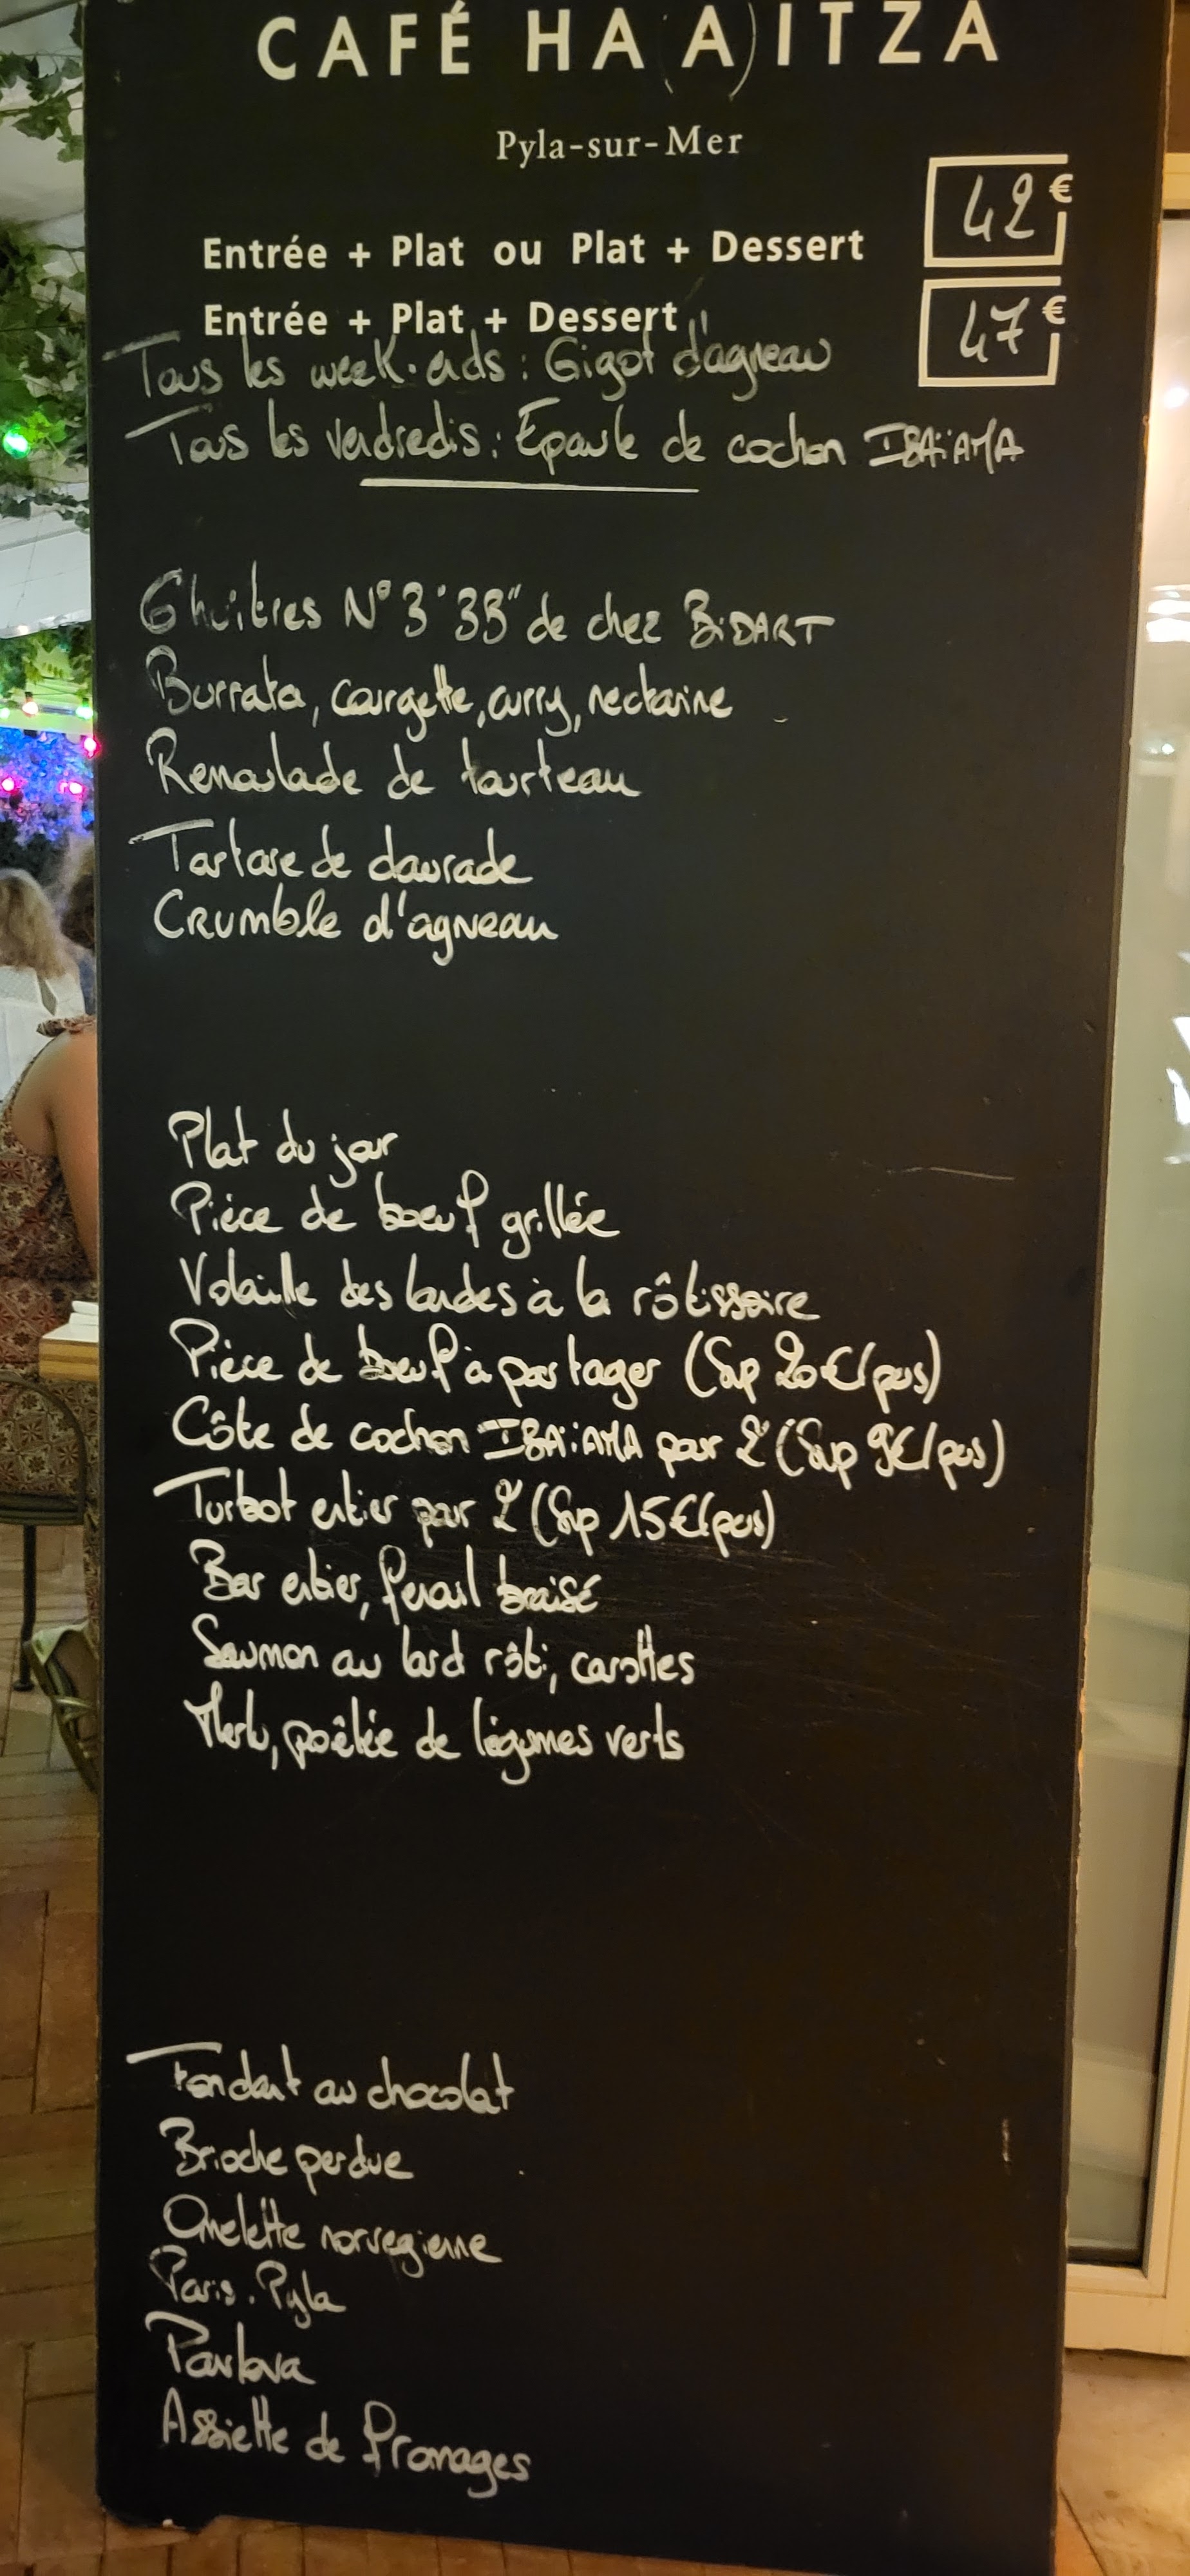 CAFÉ HA(A)ITZA
Pyla-sur-Mer
Entrée + Plat ou Plat + Dessert 42€
Entrée + Plat + Dessert 47€
Tous les week-ends : Gigot d'agneau
Tous les vendredis : Epaule de cochon IBAïAMA
6 huîtres N°3 "3B" de chez BiDART
Burrata, courgette, curry, nectarine
Remoulade de tourteau
Tartare de daurade
Crumble d'agneau
Plat du jour
Pièce de boeuf grillée
Volaille des landes à la rôtissoire
Pièce de boeuf à partager (Sup 20€/pers)
Côte de cochon IBAïAMA pour 2 (Sup 9€/pers)
Turbot entier pour 2 (Sup 15€/pers)
Bar entier, fenouil braisé
Saumon au lard rôti, carottes
Merlu, poêlée de légumes verts
Fondant au chocolat
Brioche perdue
Omelette norvegienne
Paris-Pyla
Pavlova
Assiette de fromages